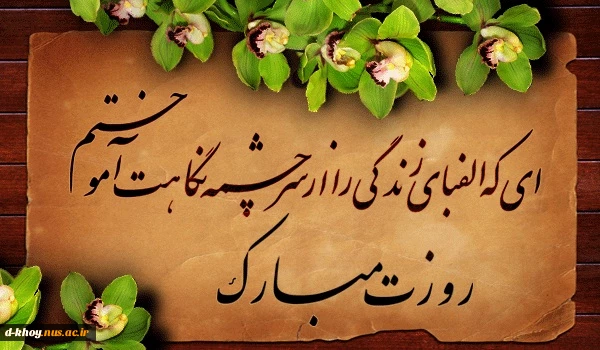 ای که الفبای زندگی را از سرچشمه نگاهت آموختم
روزت مبارک
d-khoy.nus.ac.ir